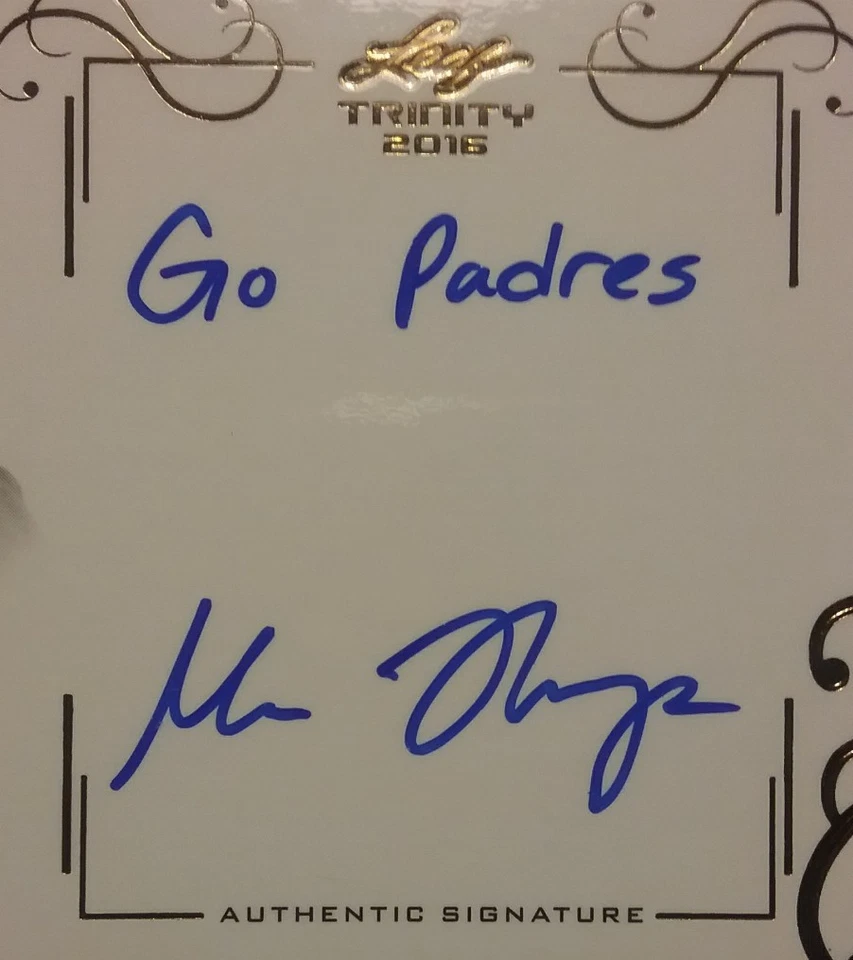 Leaf
TRINITY
2016
Go Padres
AUTHENTIC SIGNATURE